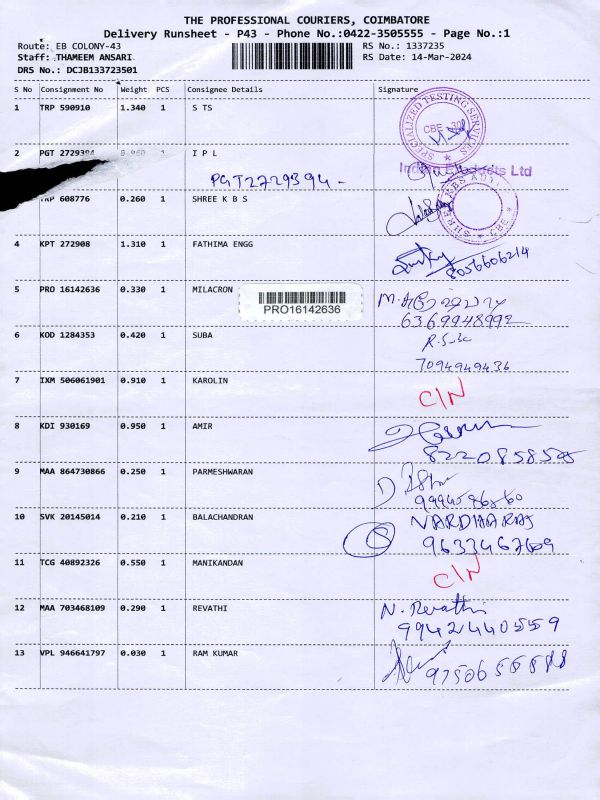 THE PROFESSIONAL COURIERS, COIMBATORE
Delivery Runsheet - P43 - Phone No.:0422-3505555 - Page No.:1
Route: EB COLONY-43 RS No.: 1337235
Staff: THAMEEM ANSARI RS Date: 14-Mar-2024
DRS No.: DCJB133723501
S No Consignment No Weight PCS Consignee Details Signature
1 TRP 590910 1.340 1 S TS
SPECIALIZED TESTING SERVICES CBE
2 PGT 2729394 1 I P L
PGT2729394 -
TRP 608776 0.260 1 SHREE K B S
4 KPT 272908 1.310 1 FATHIMA ENGG
8056606214
5 PRO 16142636 0.330 1 MILACRON
PRO16142636
6369948992
6 KOD 1284353 0.420 1 SUBA
7094949436
7 IXM 506061901 0.910 1 KAROLIN C/N
8 KDI 930169 0.950 1 AMIR
9 MAA 864730866 0.250 1 PARMESHWARAN
10 SVK 20145014 0.210 1 BALACHANDRAN VARDHARAJ
11 TCG 40892326 0.550 1 MANIKANDAN C/N
12 MAA 703468109 0.290 1 REVATHI N. Revathi
9942440559
13 VPL 946641797 0.030 1 RAM KUMAR